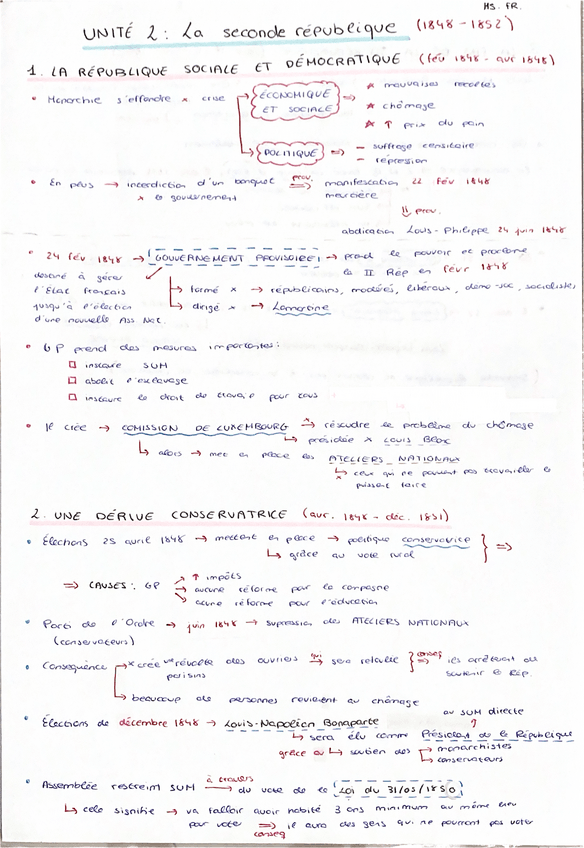 HS. FR.
UNITÉ 2: La seconde république (1848-1852)
1. LA RÉPUBLIQUE SOCIALE ET DÉMOCRATIQUE (fév 1848 - avr 1848)
• Monarchie s'effondre x crise → ÉCONOMIQUE ET SOCIALE ⇒ * mauvaises récoltes
* chômage
* ↑ prix du pain
→ POLITIQUE ⇒ - suffrage censitaire
- répression
• En plus → interdiction d'un banquet prov. ⇒ manifestation 22 fév 1848
x le gouvernement meurtrière
⇓ prov.
abdication Louis-Philippe 24 juin 1848
• 24 fév 1848 → GOUVERNEMENT PROVISOIRE → prend le pouvoir et proclame
destiné à gérer la II Rép en févr 1848
l'État français → formé x → républicains, modérés, libéraux, démo-soc, socialistes
jusqu'à l'élection → dirigé x → Lamartine
d'une nouvelle Ass Nat.
• GP prend des mesures importantes:
□ instaure SUM
□ abolit l'esclavage
□ instaure le droit de travail pour tous
• Il crée → COMISSION DE LUXEMBOURG → résoudre le problème du chômage
↳ présidée x Louis Blanc
↳ alors → met en place les ATELIERS NATIONAUX
↳ x ceux qui ne peuvent pas travailler le
puissent faire
2. UNE DÉRIVE CONSERVATRICE (avr. 1848 - déc. 1851)
• Élections 25 avril 1848 → mettent en place → politique conservatrice } ⇒
↳ grâce au vote rural
⇒ CAUSES: GP → ↑ impôts
→ aucune réforme pour la campagne
→ acune réforme pour l'éducation
• Parti de l'Ordre → juin 1848 → supression des ATELIERS NATIONAUX
(conservateurs)
• Conséquence → x crée une révolte des ouvriers qui → sera } conseq ⇒ ils arrêtent de
parisiens soutenir la Rép.
↳ beaucoup de personnes revient au chômage
au SUM directe
• Élections de décembre 1848 → Louis-Napoléon Bonaparte ↑
↳ sera élu comme Président de la République
grâce au ↳ soutien des → monarchistes
→ conservateurs
• Assemblée restreint SUM à travers → du vote de la Loi du 31/05/1850
↳ cela signifie → va falloir avoir habité 3 ans minimum au même lieu
pour voter ⇒ conseq il aura des gens qui ne pourront pas voter